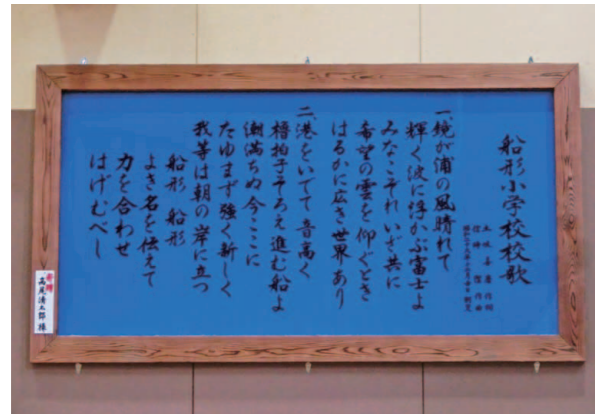 船形小学校校歌
土岐善麿作詞
信時潔作曲
一、鏡が浦の風晴れて
輝く波に浮かぶ富士よ
みなこぞれいざ共に
希望の雲を仰ぐとき
はるかに広き世界あり
二、港をいでて音高く
櫓拍子そろえ進む船よ
潮満ちぬ今ここに
たゆまず強く新しく
我等は朝の岸に立つ
船形 船形
よき名を伝えて
力を合わせ
はげむべし